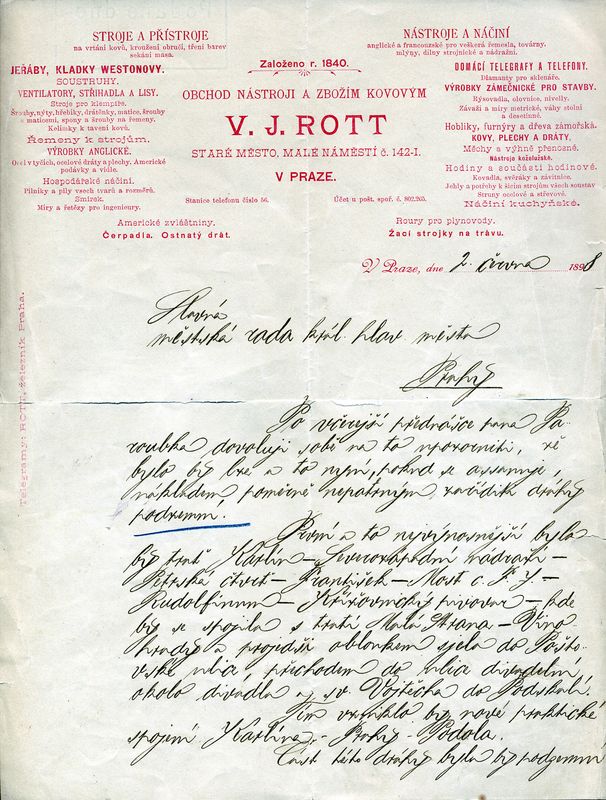 STROJE A PŘÍSTROJE
na vrtání kovů, kroužení obručí, tření barev
sekání masa.
JEŘÁBY, KLADKY WESTONOVY.
SOUSTRUHY.
VENTILATORY, STŘIHADLA A LISY.
Stroje pro klempíře.
Šrouby, nýty, hřebíky, drátěnky, matice, šrouby
s maticemi, spony a šrouby na řemeny.
Kelímky k tavení kovů.
Řemeny k strojům.
VÝROBKY ANGLICKÉ.
Ocel v tyčích, ocelové dráty a plechy. Americké
podávky a vidle.
Hospodářské náčiní.
Pilníky a pily všech tvarů a rozměrů.
Smirek.
Míry a řetězy pro ingenieury.
Americké zvláštniny.
Čerpadla. Ostnatý drát.
Založeno r. 1840.
OBCHOD NÁSTROJI A ZBOŽÍM KOVOVÝM
V. J. ROTT
STARÉ MĚSTO, MALÉ NÁMĚSTÍ č. 142-I.
V PRAZE.
Stanice telefonu číslo 56.
Účet u pošt. spoř. č. 802.205.
NÁSTROJE A NÁČINÍ
anglické a francouzské pro veškerá řemesla, továrny.
mlýny, dílny strojnické a nádražní.
DOMÁCÍ TELEGRAFY A TELEFONY.
Diamanty pro sklenáře.
VÝROBKY ZÁMEČNICKÉ PRO STAVBY.
Rýsovadla, olovnice, nivelly.
Závaží a míry metrické, váhy stolní
a desetinné.
Hoblíky, furnýry a dřeva zámořská.
KOVY, PLECHY A DRÁTY,
Měchy a výhně přenosné.
Nástroje koželužské.
Hodiny a součásti hodinové.
Kovadla, svěráky a závitnice.
Jehly a potřeby k šicím strojům všech soustav
Struny ocelové a střevové.
Náčiní kuchyňské.
Roury pro plynovody.
Žací strojky na trávu.
V Praze, dne 2. června 1898
Telegramy: ROTT, železník Praha.
Slavná
městská rada král. hlav. města
Prahy
Po včerejší přednášce pana Pa-
roubka dovoluji sobě na to upozorniti, že
bylo by lze a to nyní, pokud se assanuje,
nákladem poměrně nepatrným zaříditi dráhy
podzemní.
První a to nejvýnosnější byla
by trať Karlín – Severozápadní nádraží –
Petrská čtvrť – František – Most c. F. J. –
Rudolfinum – Křižovnický pivovar – kde
by se spojila s tratí Malá Strana – Vino-
hrady a projedši obloukem sjela do Pošto-
vské ulice, přechodem do ulice divadelní,
okolo divadla a sv. Vojtěcha do Podskalí.
Tím vzniklo by nové praktické
spojení Karlína – Prahy – Podola.
Část této dráhy byla by podzemní